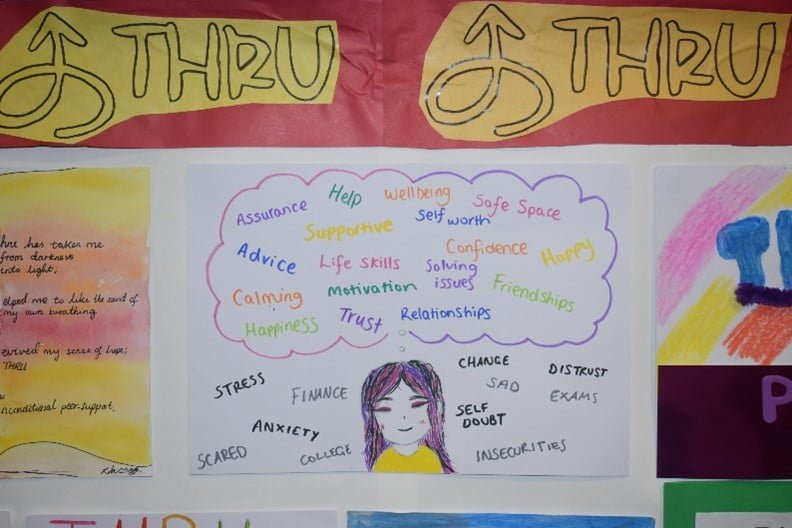 THRU
THRU
Assurance Help Wellbeing Safe Space
Supportive Self worth
Advice Life skills Solving issues Confidence Happy
Calming Motivation Friendships
Happiness Trust Relationships
STRESS FINANCE CHANGE SAD DISTRUST
ANXIETY SELF DOUBT EXAMS
SCARED COLLEGE INSECURITIES
has taken me
from darkness
into light;
me to like the sound of
my own breathing.
my sense of hope;
THRU
unconditional peer support.
P
THRU